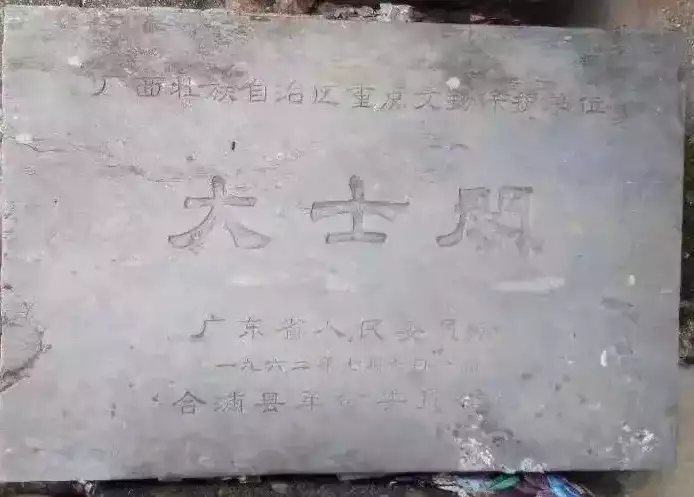 广西壮族自治区重点文物保护单位
大士阁
广东省人民委员会
一九六二年七月
合浦县革命委员会